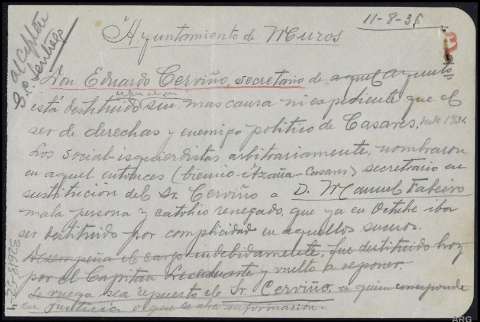 11-8-36
al Capitán
Sr.
Ayuntamiento de Muros
Don Eduardo Cerviño, secretario de aquel Ayunto
está destituído sin mas causa ni expediente que el
ser de derechas y enemigo político de Casares,
Los social-izquierdistas arbitrariamente, nombraron
en aquel entonces (bienio Azaña-Casares) secretario en
sustitución del Sr. Cerviño a D. Manuel Tabeiro
mala persona y católico renegado, que ya en Octubre iba
ser destituído por complicidad en aquellos sucesos.
Desempeña el cargo indebidamente, fue destituido hoy
por el Capitán y vuelto a reponer.
Se ruega sea repuesto el Sr. Cerviño, a quien corresponde
en justicia
ARG